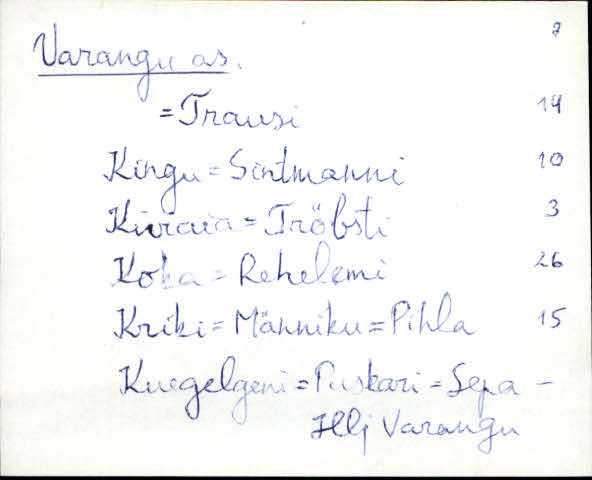 7
Varangu as.
= Trausi 14
Kingu = Sintmanni 10
Kivraia = Tröbsti 3
Koka = Rehelemi 26
Kriki = Männiku = Pihla 15
Kuegelgeni = Puskari = Sepa –
Varangu